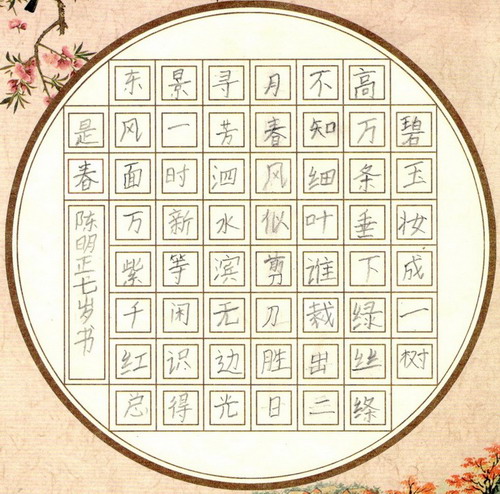 碧玉妆成一树
高万条垂下绿丝绦
不知细叶谁裁出二
月春风似剪刀胜日
寻芳泗水滨无边光
景一时新等闲识得
东风面万紫千红总
是春
陈明正七岁书